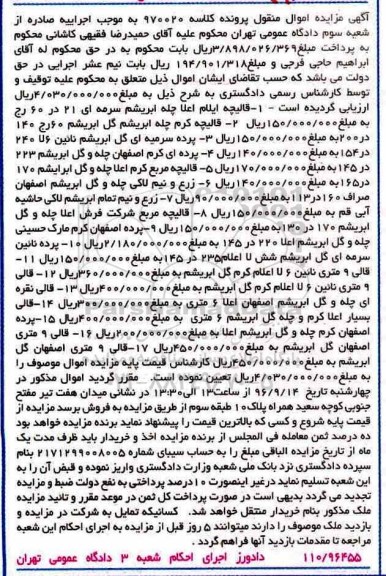 آگهی مزایده اموال منقول پرونده کلاسه ۹۷۰۰۲۰ به موجب اجراییه صادره از
شعبه سوم دادگاه عمومی تهران محکوم علیه آقای حمیدرضا فقیهی کاشانی محکوم
به پرداخت مبلغ۳/۸۹۸/۰۲۶/۳۶۹ریال بابت محکوم به در حق محکوم له آقای
ابراهیم حاجی فرجی و مبلغ۱۹۴/۹۰۱/۳۱۸ ریال بابت نیم عشر اجرایی در حق
دولت می باشد که حسب تقاضای ایشان اموال ذیل متعلق به محکوم علیه توقیف و
توسط کارشناس رسمی دادگستری به شرح ذیل به مبلغ۴/۰۳۰/۰۰۰/۰۰۰ریال
ارزیابی گردیده است - ۱-قالیچه ایلام اعلا چله ابریشم سرمه ای ۲۱ در ۶۰ رج
به مبلغ۱۵۰/۰۰۰/۰۰۰ریال ۲- قالیچه کرم چله ابریشم گل ابریشم ۶۰رج ۱۴۰
در۲۰۰به مبلغ۱۵۰/۰۰۰/۰۰۰ریال ۳- پرده سرمه ای گل ابریشم نائین ۶لا ۲۴۰
در۱۵۴به مبلغ۱۴۰/۰۰۰/۰۰۰ریال ۴- پرده ای کرم اصفهان چله و گل ابریشم ۲۲۳
در ۱۴۵ به مبلغ۱۷۰/۰۰۰/۰۰۰ریال ۵- قالیچه مربع کرم اعلا چله و گل ابرایشم ۱۷۰
در۱۶۵به مبلغ۱۴۰/۰۰۰/۰۰۰ریال ۶- زرع و نیم لاکی چله و گل ابریشم اصفهان
صراف ۱۶۰در۱۱۳به مبلغ۹۰/۰۰۰/۰۰۰ریال ۷- زرع و نیم تمام ابریشم لاکی حاشیه
آبی قم به مبلغ۱۵۰/۰۰۰/۰۰۰ریال ۸- قالیچه مربع شرکت فرش اعلا چله و گل
ابریشم ۱۷۰ در ۱۳۰به مبلغ۱۵۰/۰۰۰/۰۰۰ریال ۹-پرده اصفهان کرم مارک حسینی
چله و گل ابریشم اعلا ۲۲۰ در ۱۴۵ به مبلغ۲/۱۸۰/۰۰۰/۰۰۰ریال ۱۰- پرده نائین
سرمه ای گل ابریشم شش لا اعلام۲۳۵ در ۱۴۵ به مبلغ۱۵۰/۰۰۰/۰۰۰ریال ۱۱-
قالی ۹ متری نائین ۶ لا اعلام کرم گل ابریشم به مبلغ۳۶۰/۰۰۰/۰۰۰ریال ۱۲- قالی
۹ متری نائین ۶ لا اعلام کرم گل ابریشم به مبلغ۴۰۰/۰۰۰/۰۰۰ریال ۱۳- قالی نقره
ای چله و گل ابریشم اصفهان اعلا ۶ متری به مبلغ۳۰۰/۰۰۰/۰۰۰ریال ۱۴-قالی
بسیار اعلا کرم و چله گل ابریشم ۶ متری به مبلغ۴۰۰/۰۰۰/۰۰۰ریال ۱۵-پرده
اصفهان کرم چله و گل ابریشم اعلا به مبلغ۲۰۰/۰۰۰/۰۰۰ریال ۱۶- قالی ۹ متری
اصفهان گل ابریشم به مبلغ۴۵۰/۰۰۰/۰۰۰ریال ۱۷-قالی ۹ متری اصفهان گل
ابریشم به مبلغ۴۵۰/۰۰۰/۰۰۰ریال کارشناس قیمت پایه مزایده اموال موصوف را
به مبلغ۴/۰۳۰/۰۰۰/۰۰۰ریال تعیین نموده است. مقرر گردید اموال مذکور در
چهارشنبه تاریخ ۹۶/۹/۱۴ از ساعت۱۳ الی۱۳:۳۰ در نشانی میدان هفت تیر مفتح
جنوبی کوچه سعید همراه پلاک۱۰ طبقه سوم از طریق مزایده به فروش برسد مزایده از
قیمت پایه شروع و کسی که بالاترین قیمت را پیشنهاد نماید برنده مزایده خواهد بود
ده درصد ثمن معامله فی المجلس از برنده مزایده اخذ و خریدار باید ظرف مدت یک
ماه از تاریخ مزایده الباقی مبلغ را به حساب سیبای شماره ۲۱۷۱۲۹۹۰۰۸۰۰۵ بنام
سپرده دادگستری نزد بانک ملی شعبه وزارت دادگستری واریز نموده و قبض آن را به
این شعبه تسلیم نماید درغیر اینصورت ۱۰درصد پرداختی به نفع دولت ضبط و مزایده
تجدید می گردد بدیهی است در صورت پرداخت کل ثمن در موعد مقرر و تائید مزایده
ملک مذکور بنام خریدار منتقل خواهد شد. کسانیکه تمایل به شرکت در مزایده و
بازدید ملک موصوف را دارند میتوانند ۵ روز قبل از مزایده به اجرای احکام این شعبه
مراجعه تا مقدمات بازدید آنها فراهم گردد .
۱۱۰/۹۶۴۵۵ دادورز اجرای احکام شعبه ۳ دادگاه عمومی تهران